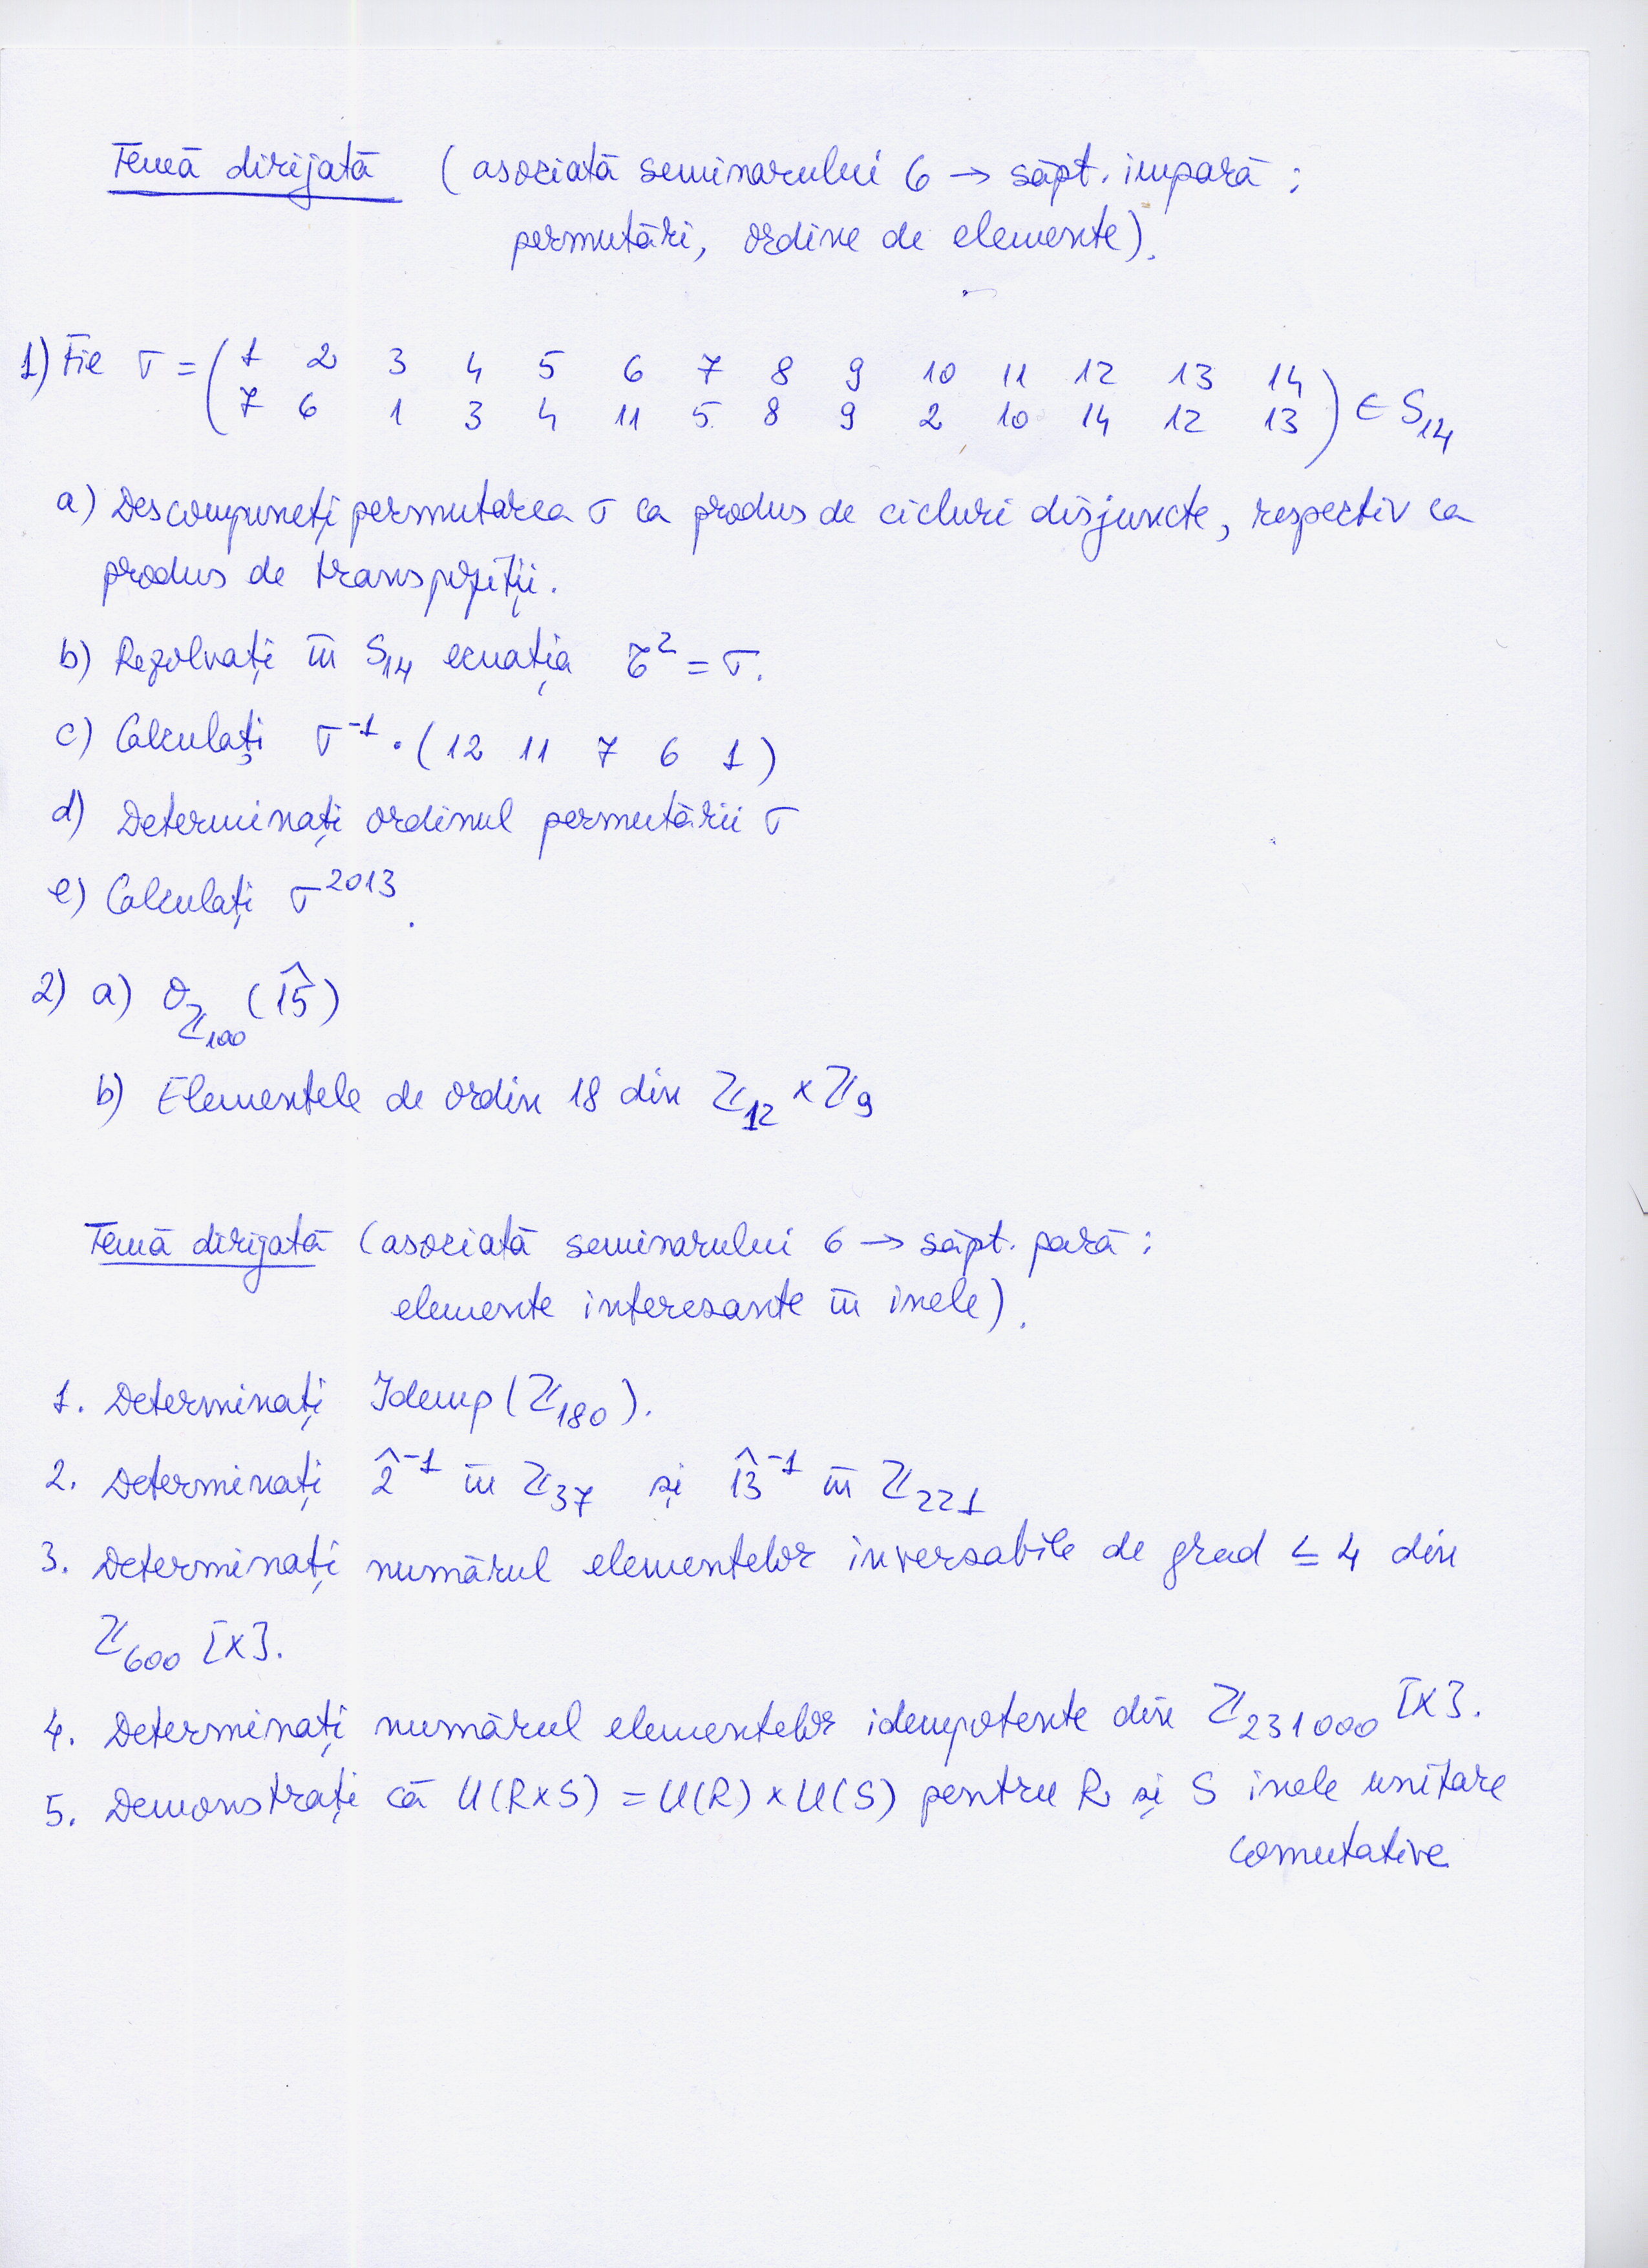 Temă dirijată (asociată seminarului 6 → săpt. impară :
permutări, ordine de elemente).
1) Fie σ = ( 1 2 3 4 5 6 7 8 9 10 11 12 13 14
7 6 1 3 4 11 5 8 9 2 10 14 12 13 ) ∈ S₁₄
a) Descompuneți permutarea σ ca produs de cicluri disjuncte, respectiv ca
produs de transpoziții.
b) Rezolvați în S₁₄ ecuația τ² = σ.
c) Calculați σ⁻¹ · (12 11 7 6 1)
d) Determinați ordinul permutării σ
e) Calculați σ²⁰¹³.
2) a) O_ℤ₁₀₀ (1̂5)
b) Elementele de ordin 18 din ℤ₁₂ × ℤ₉
Temă dirijată (asociată seminarului 6 → săpt. pară :
elemente interesante în inele).
1. Determinați Idemp(ℤ₁₈₀).
2. Determinați 2̂⁻¹ în ℤ₃₇ și 1̂3⁻¹ în ℤ₂₂₁
3. Determinați numărul elementelor inversabile de grad ≤ 4 din
ℤ₆₀₀ [X].
4. Determinați numărul elementelor idempotente din ℤ₂₃₁₀₀₀ [X].
5. Demonstrați că U(R×S) = U(R) × U(S) pentru R și S inele unitare
comutative